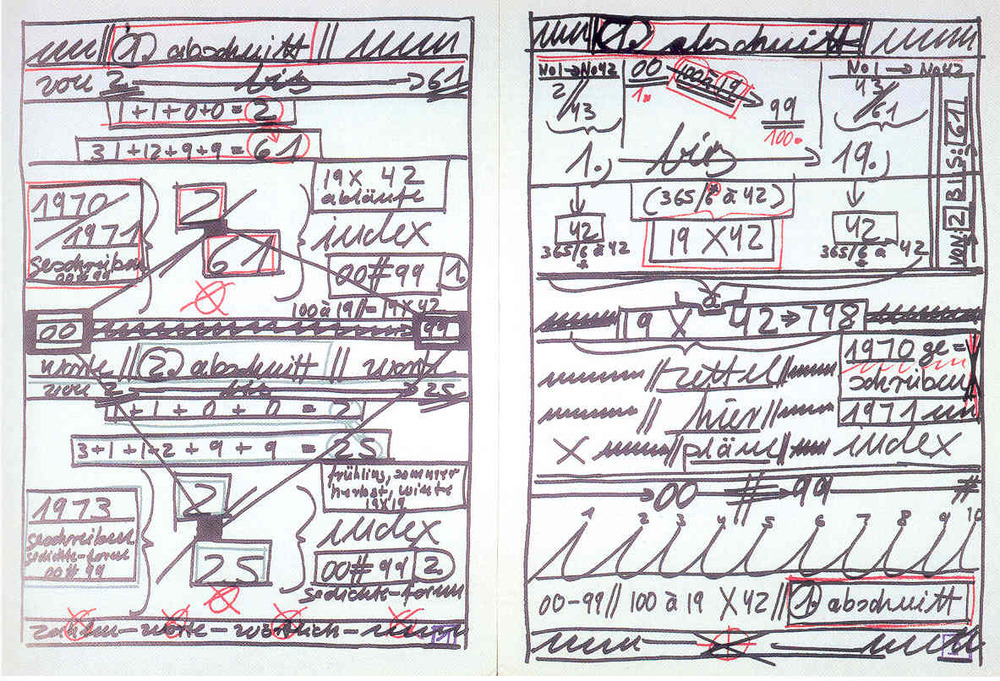 1.) abschnitt
von 2 bis → 61
1+1+0+0=2
31+12+9+9=61
1970/1971
geschrieben
00#99
2
61
19X 42
abläufe
index
00#99 1.
100 à 19//=19X42
00 99
worte // 2.) abschnitt // worte
von 2 bis 25
1 + 1 + 0 + 0 = 2
3+1+1+2+9+9 = 25
1973
geschrieben
gedichte-form
00#99
2
25
frühling, sommer
herbst, winter
19X19
index
00#99 2.
gedichte-form
zahlen-worte-wörtlich-
1.) abschnitt
No1→No42
2/43
00 100 à 19 → 99
1. 100.
No1→No42
43/61
1.) bis → 19.)
VON: 2 BIS: 61
42
365/6 à 42
(365/6 à 42)
19 X 42
42
365/6 à 42
19 X 42→798
zettel
hier
X pläne index
1970 ge=
schrieben
1971
→00 # →99 #
1 2 3 4 5 6 7 8 9 10
00-99// 100 à 19 X42// 1.) abschnitt